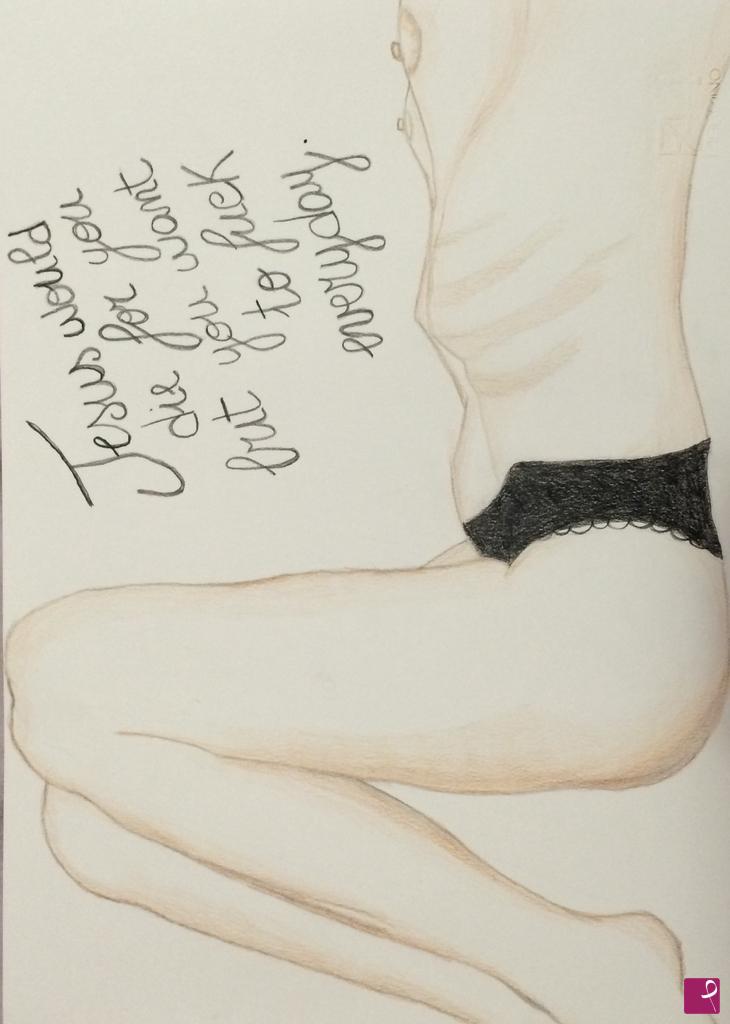 Jesus would
die for you
but you want
to fuck
everyday.